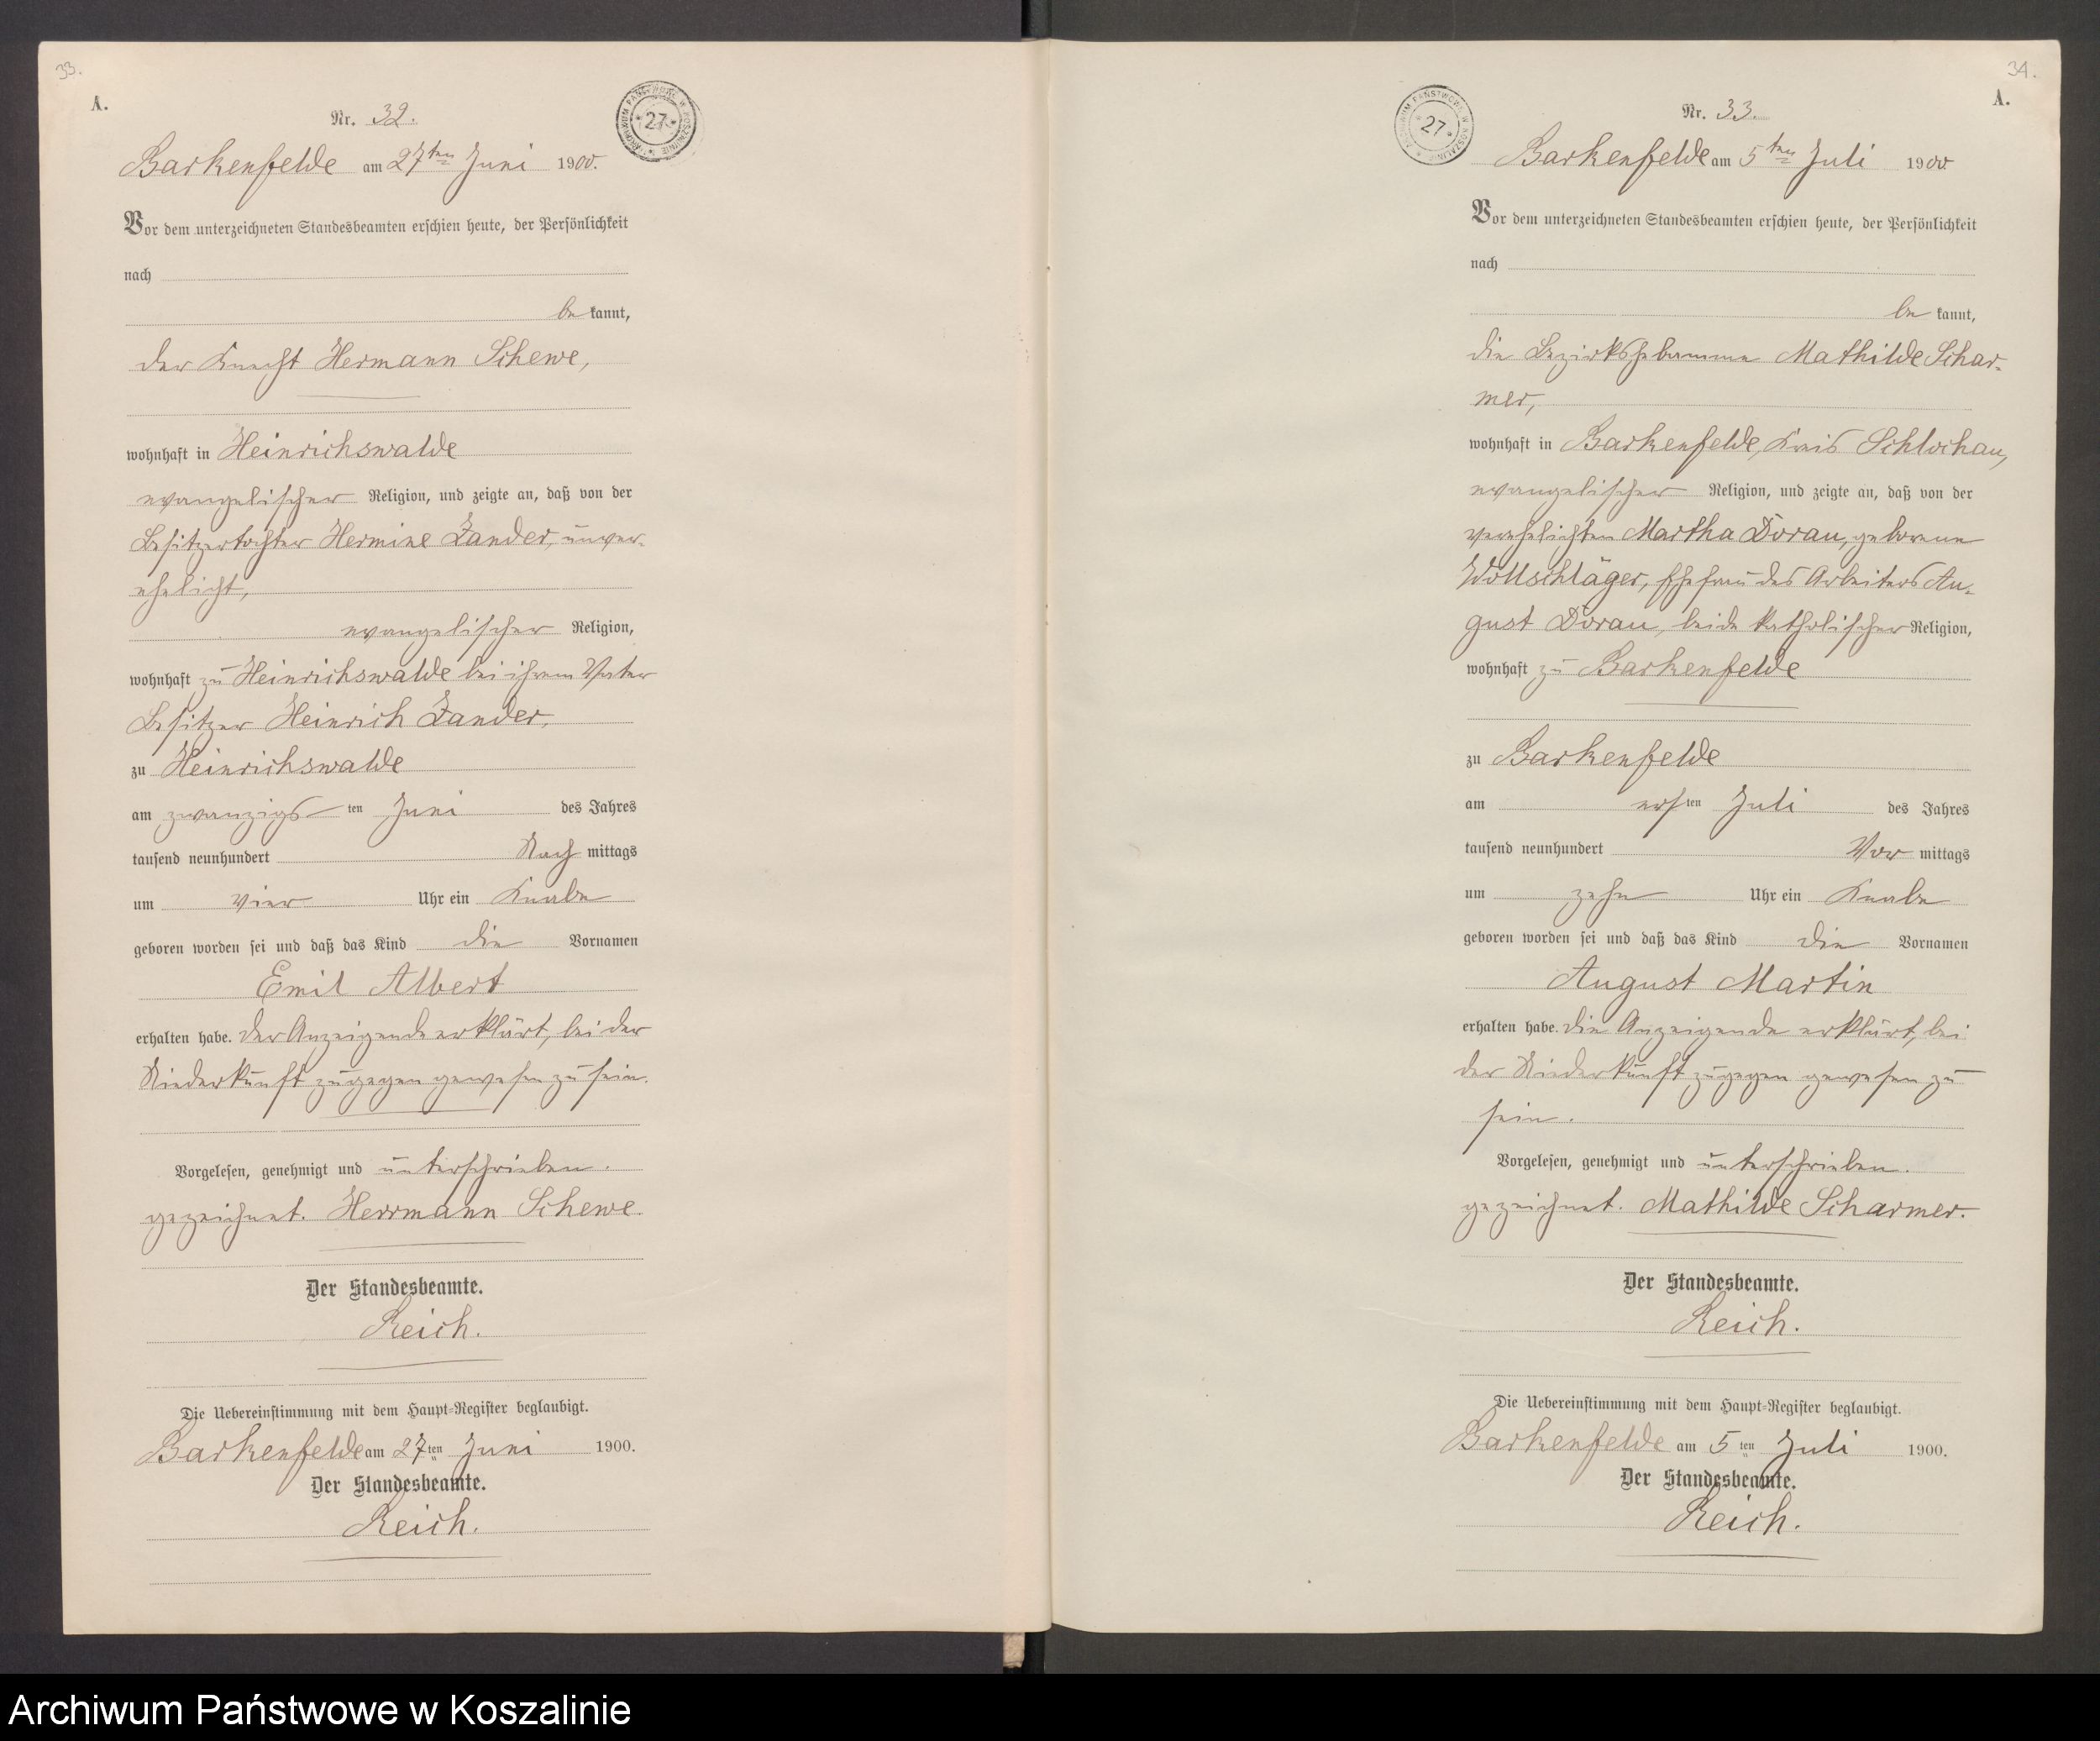 33.
A.
Nr. 32.
ARCHIWUM PAŃSTWOWE W KOSZALINIE * 27 *
Barkenfelde am 27ten Juni 1900.
Vor dem unterzeichneten Standesbeamten erschien heute, der Persönlichkeit
nach
be kannt,
der Knecht Hermann Schewe,
wohnhaft in Heinrichswalde
evangelischer Religion, und zeigte an, daß von der
Besitzertochter Hermine Zander, unver-
ehelicht,
evangelischer Religion,
wohnhaft zu Heinrichswalde bei ihrem Vater
Besitzer Heinrich Zander,
zu Heinrichswalde
am zwanzigs ten Juni des Jahres
tausend neunhundert Nach mittags
um vier Uhr ein Knabe
geboren worden sei und daß das Kind die Vornamen
Emil Albert
erhalten habe. Der Anzeigende erklärt, bei der
Niederkunft zugegen gewesen zu sein.
Vorgelesen, genehmigt und unterschrieben.
gezeichnet. Herrmann Schewe.
Der Standesbeamte.
Reich.
Die Uebereinstimmung mit dem Haupt-Register beglaubigt.
Barkenfelde am 27ten Juni 1900.
Der Standesbeamte.
Reich.
34.
A.
Nr. 33.
ARCHIWUM PAŃSTWOWE W KOSZALINIE * 27 *
Barkenfelde am 5ten Juli 1900
Vor dem unterzeichneten Standesbeamten erschien heute, der Persönlichkeit
nach
be kannt,
die Bezirkshebamme Mathilde Schar-
mer,
wohnhaft in Barkenfelde, Kreis Schlochau,
evangelischer Religion, und zeigte an, daß von der
verehelichten Martha Dorau, geborene
Wollschläger, Ehefrau des Arbeiters Au-
gust Dorau, beide katholischer Religion,
wohnhaft zu Barkenfelde
zu Barkenfelde
am ers ten Juli des Jahres
tausend neunhundert Vor mittags
um zehn Uhr ein Knabe
geboren worden sei und daß das Kind die Vornamen
August Martin
erhalten habe. Die Anzeigende erklärt, bei
der Niederkunft zugegen gewesen zu
sein.
Vorgelesen, genehmigt und unterschrieben.
gezeichnet. Mathilde Scharmer.
Der Standesbeamte.
Reich.
Die Uebereinstimmung mit dem Haupt-Register beglaubigt.
Barkenfelde am 5ten Juli 1900.
Der Standesbeamte.
Reich.
Archiwum Państwowe w Koszalinie